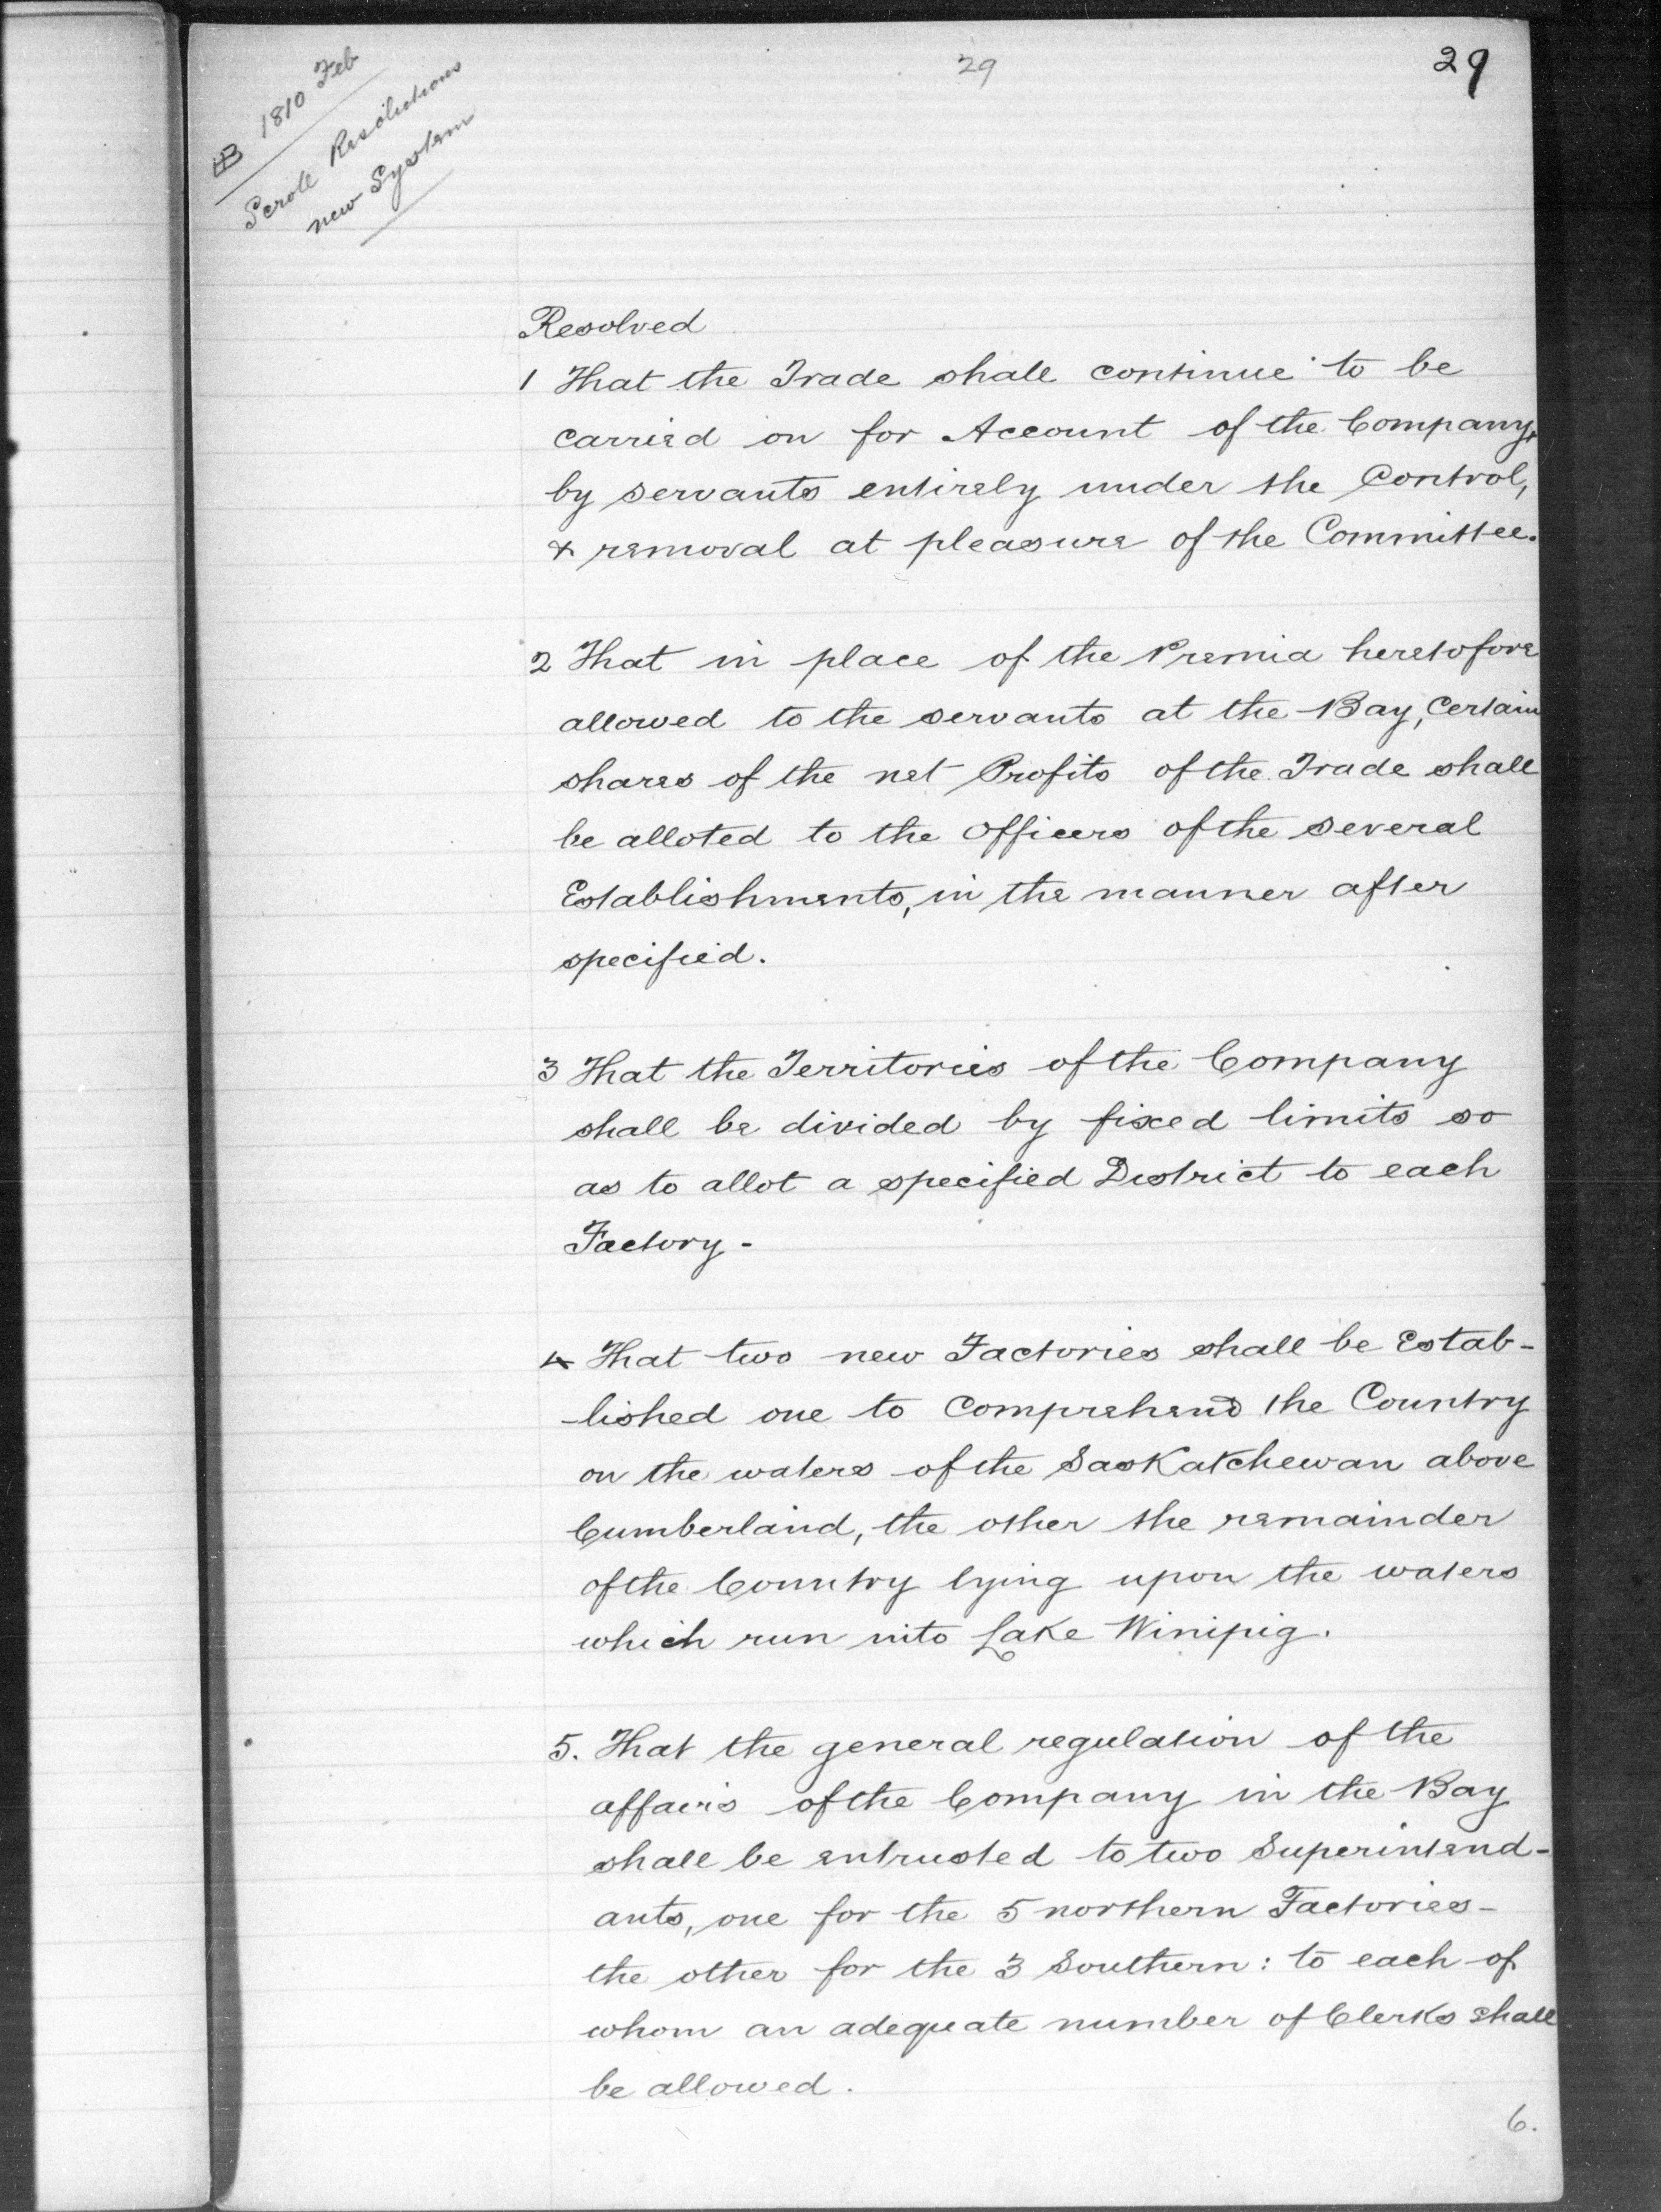 29
29
HB 1810 Feb
Scrole Resolutions
new System
Resolved
1 That the Trade shall continue to be
carried on for Account of the Company,
by servants entirely under the Control,
& removal at pleasure of the Committee.
2 That in place of the Premia heretofore
allowed to the servants at the Bay, Certain
shares of the net Profits of the Trade shall
be alloted to the Officers of the several
Establishments, in the manner after
specified.
3 That the Territories of the Company
shall be divided by fixed limits so
as to allot a specified District to each
Factory -
4 That two new Factories shall be Estab-
-lished one to Comprehend the Country
on the waters of the Saskatchewan above
Cumberland, the other the remainder
of the Country lying upon the waters
which run into Lake Winipig.
5. That the general regulation of the
affairs of the Company in the Bay
shall be entrusted to two Superintend-
ants, one for the 5 northern Factories -
the other for the 3 Southern: to each of
whom an adequate number of Clerks shall
be allowed.
6.